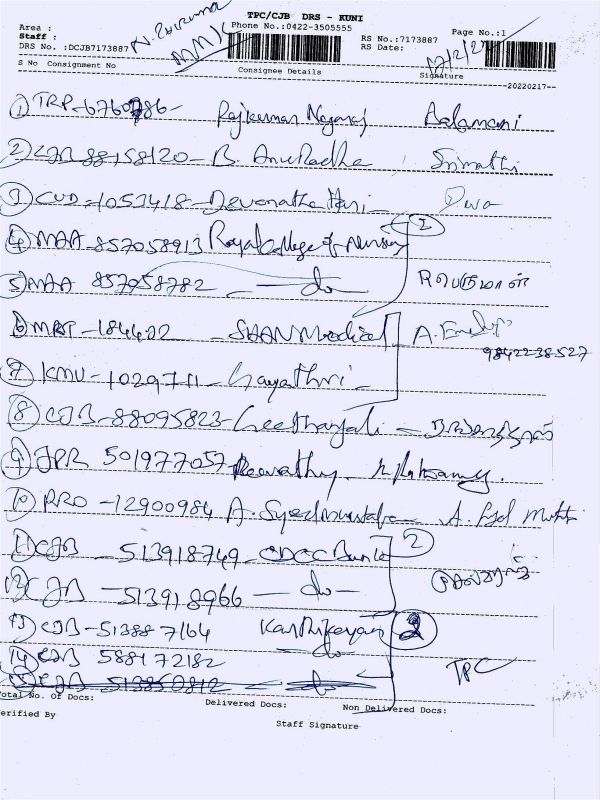 TPC/CJB DRS - KUNI
Area :
Phone No.:0422-3505555
Page No.:1
Staff :
RS No.:7173887
DRS No. :DCJB7173887
RS Date:
S No Consignment No
Consignee Details
Signature
--20220217--
① TRP-6760786- Rajkumar Nagaraj Aalamani
② CJB 88158120- B. Anuradha Srimathi
③ CUD-1053418- Devanatha Hari-
④ MAA-857058913 Royal College of Nursing ②
⑤ MAA 857058782 -do- R பெருமாள்
⑥ -184422 -SHAN Medical A.
98422-38527
⑦ KMU-1029711- Gayathri-
⑧ CJB-88095823- Geethanjali -
⑨ JPR 501977057-
⑩ RRO-12900984 A. Syed A.
⑪ CJB -513918749- Bank ②
⑫ CJB -513918966 -do-
⑬ CJB-513887164 Karthikeyan
-do-
⑭ CJB 588172182 TPC
⑮ CJB 513850812 -do-
Total No. Of Docs:
Delivered Docs:
Non Delivered Docs:
Verified By
Staff Signature